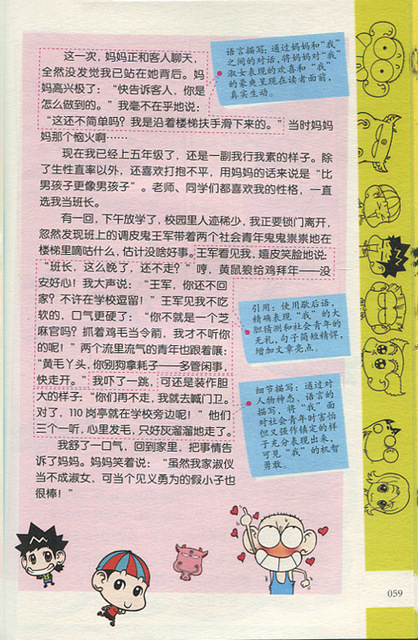 这一次，妈妈正和客人聊天，
全然没发觉我已站在她背后。妈
妈高兴极了：“快告诉客人，你是
怎么做到的。”我毫不在乎地说：
“这还不简单吗？我是沿着楼梯扶手滑下来的。”当时妈妈
妈那个恼火啊……
现在我已经上五年级了，还是一副我行我素的样子。除
了生性直率以外，还喜欢打抱不平，用妈妈的话来说是“比
男孩子更像男孩子”。老师、同学们都喜欢我的性格，一直
选我当班长。
有一回，下午放学了，校园里人迹稀少，我正要锁门离开，
忽然发现班上的调皮鬼王军带着两个社会青年鬼鬼祟祟地在
楼梯里嘀咕什么，估计没啥好事。王军看见我，嬉皮笑脸地说：
“班长，这么晚了，还不走？”哼，黄鼠狼给鸡拜年——没
安好心！我大声说：“王军，你还不回
家？不许在学校逗留！”王军见我不吃
软的，口气更硬了：“你不就是一个芝
麻官吗？抓着鸡毛当令箭，我才不听你
的呢！”两个流里流气的青年也跟着嚷：
“黄毛丫头，你别狗拿耗子——多管闲事，
快走开。”我吓了一跳，可还是装作胆
大的样子：“你们再不走，我就去喊门卫。
对了，110岗亭就在学校旁边呢！”他们
三个一听，心里发毛，只好灰溜溜地走了。
我舒了一口气，回到家里，把事情告
诉了妈妈。妈妈笑着说：“虽然我家淑仪
当不成淑女，可当个见义勇为的假小子也
很棒！”
语言描写：通过妈妈和“我”
之间的对话，将妈妈对“我”
淑女表现的欢喜和“我”
的豪爽呈现在读者面前，
真实生动。
引用：使用歇后语，
精确表现“我”的大
胆猜测和社会青年的
无礼，句子简短精评，
增加文章亮点。
细节描写：通过对
人物神态、语言的
描写，将“我”面
对社会青年时害怕
但又强作镇定的样
子充分表现出来，
可见“我”的机智
勇敢。
059